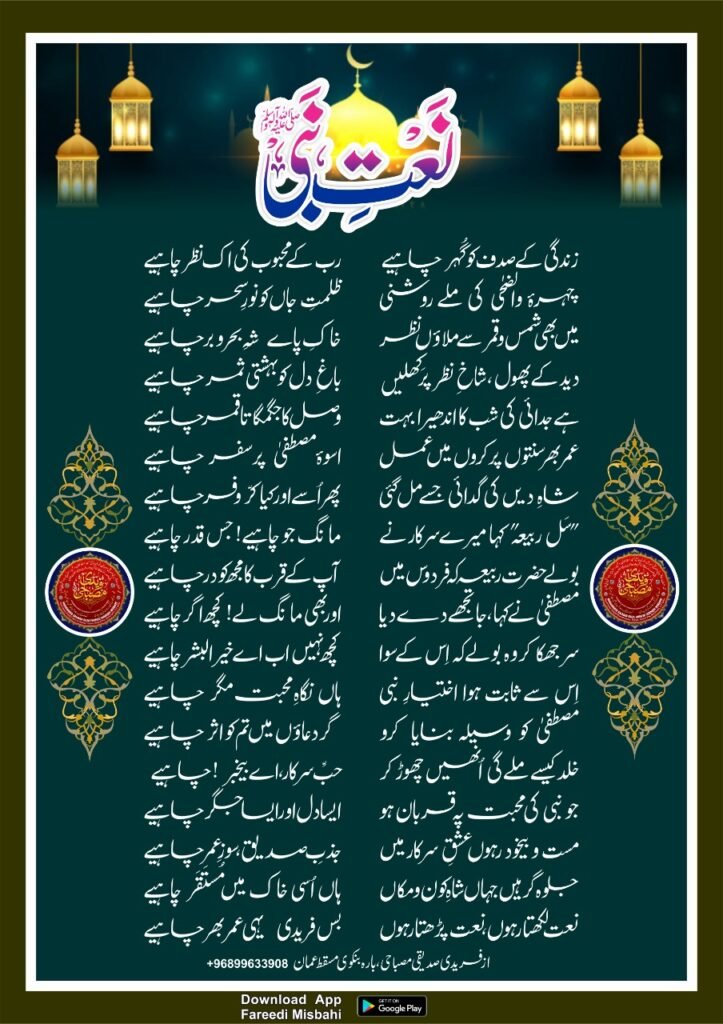 نعتِ نبی ﷺ
زندگی کے صدف کو گُہر چاہیے رب کے محبوب کی اک نظر چاہیے
چہرۂ والضحٰی کی ملے روشنی ظلمتِ جاں کو نورِ سحر چاہیے
میں بھی شمس و قمر سے ملاؤں نظر خاکِ پاے شہِ بحر و بر چاہیے
دید کے پھول، شاخِ نظر پر کھلیں باغِ دل کو بہشتی ثمر چاہیے
ہے جدائی کی شب کا اندھیرا بہت وصل کا جگمگاتا قمر چاہیے
عمر بھر سنتوں پر کروں میں عمل اسوۂ مصطفیٰ پر سفر چاہیے
شاہِ دیں کی گدائی جسے مل گئی پھر اُسے اور کیا کرّ و فر چاہیے
”سَل ربیعہ“ کہا میرے سرکار نے مانگ جو چاہیے! جس قدر چاہیے
بولے حضرت ربیعہ کہ فردوس میں آپ کے قرب کا مجھ کو در چاہیے
مصطفیٰ نے کہا، جا تجھے دے دیا اور بھی مانگ لے! کچھ اگر چاہیے
سر جھکا کر وہ بولے کہ اِس کے سوا کچھ نہیں اب اے خیر البشر چاہیے
اِس سے ثابت ہوا اختیارِ نبی ہاں نگاہِ محبت مگر چاہیے
مصطفیٰ کو وسیلہ بنایا کرو گر دعاؤں میں تم کو اثر چاہیے
خلد کیسے ملے گی اُنھیں چھوڑ کر حبِّ سرکار، اے بیخبر! چاہیے
جو نبی کی محبت پہ قربان ہو ایسا دل اور ایسا جگر چاہیے
مست و بیخود رہوں عشقِ سرکار میں جذبِ صدیق، سوزِ عمر چاہیے
جلوہ گر ہیں جہاں شاہِ کون و مکاں ہاں اُسی خاک میں مُستَقَر چاہیے
نعت لکھتا رہوں، نعت پڑھتا رہوں بس فریدی یہی عمر بھر چاہیے
از فریدی صدیقی مصباحی، بارہ بنکوی مسقط عمان +96899633908
Download App
Fareedi Misbahi
GET IT ON
Google Play